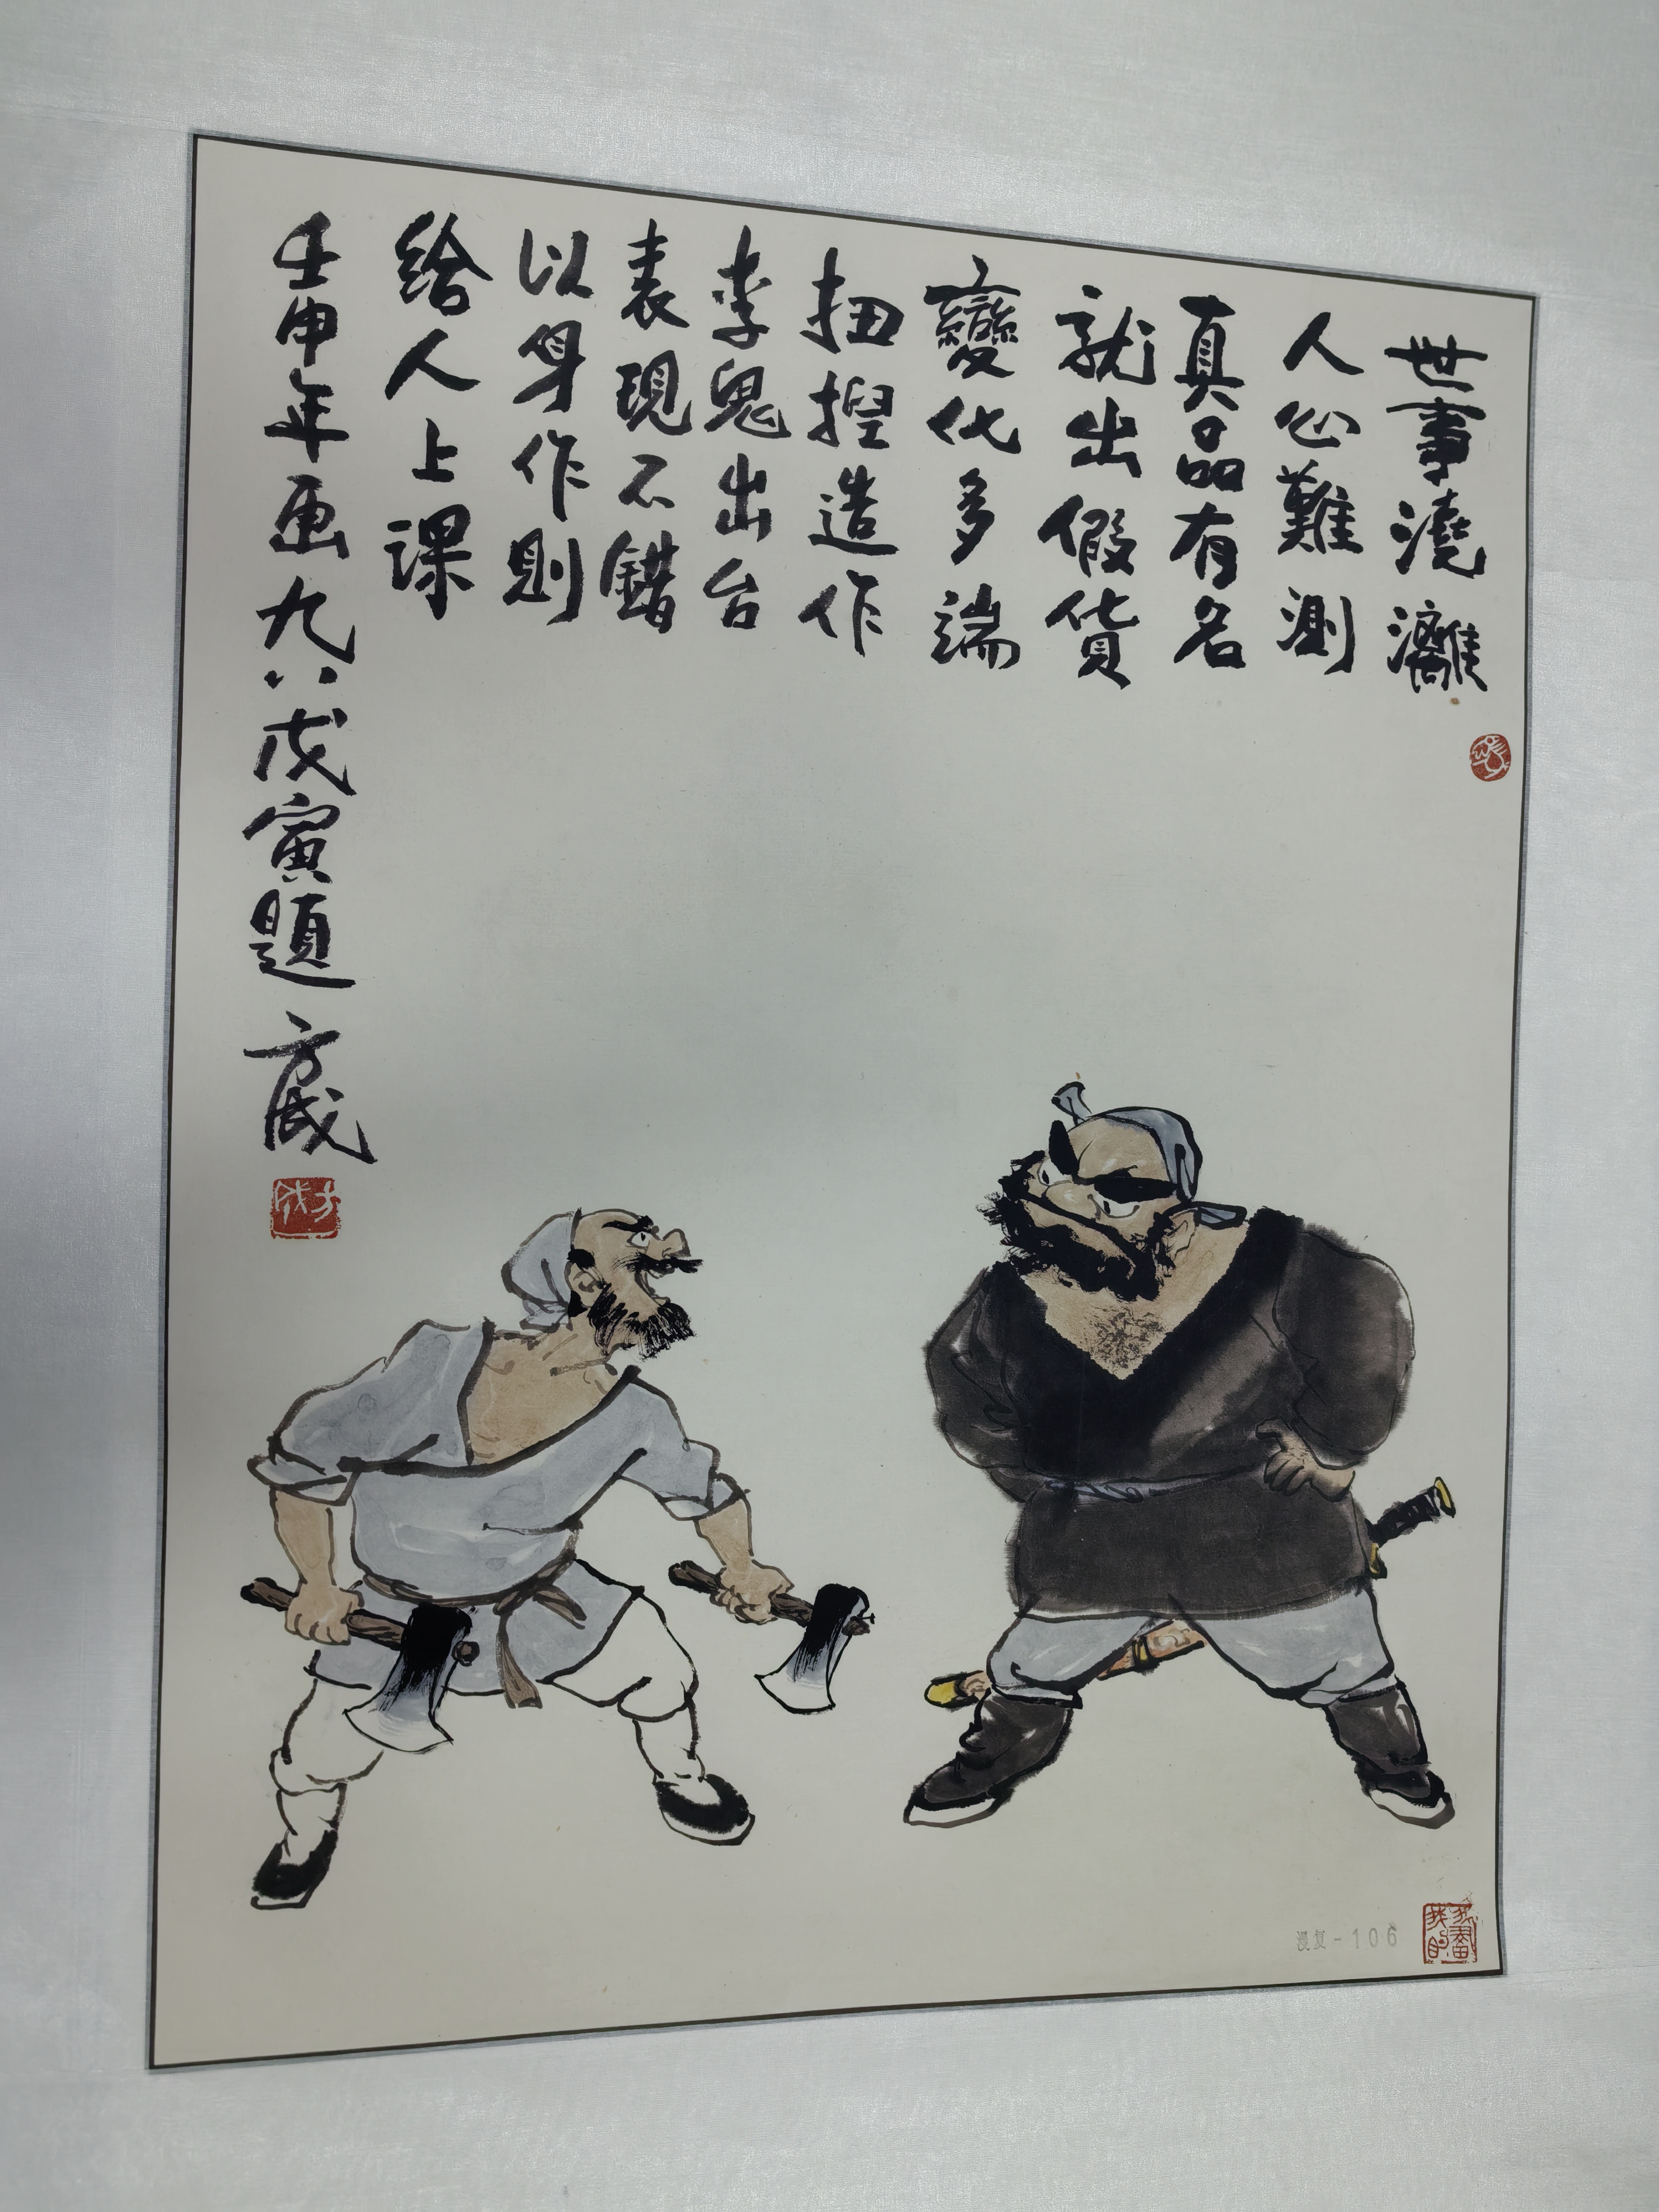 世事澆漓
人心難測
真品有名
就出假貨
變化多端
扭捏造作
李鬼出台
表現不錯
以身作則
给人上课
壬申年画九八戊寅題 方成
方成
漫复-106